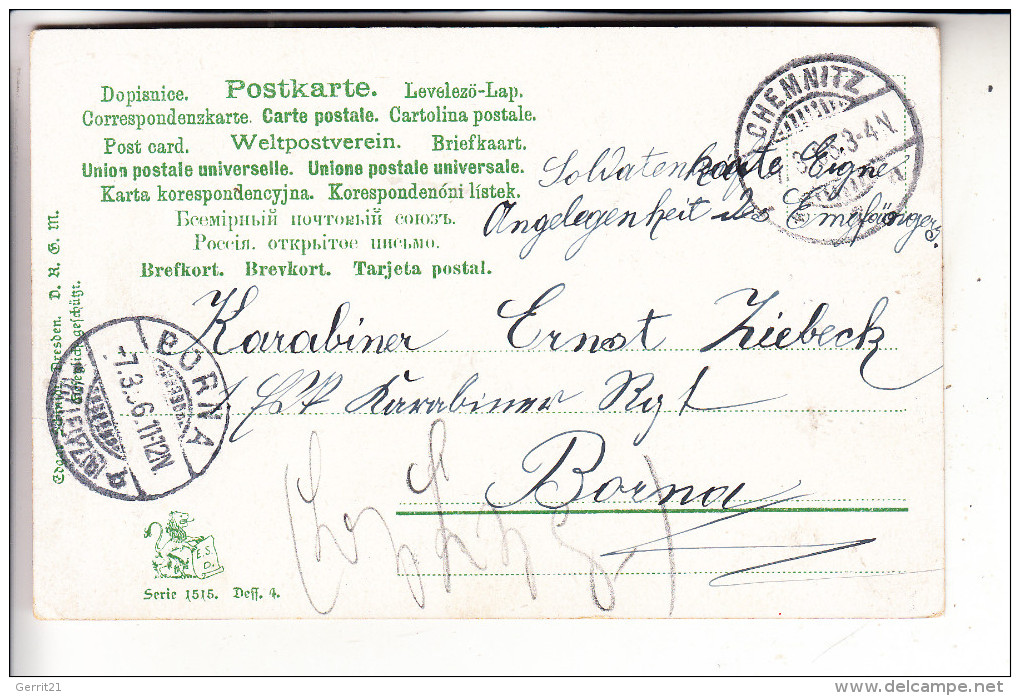 Dopisnice. Postkarte. Levelező-Lap.
Correspondenzkarte. Carte postale. Cartolina postale.
Post card. Weltpostverein. Briefkaart.
Union postale universelle. Unione postale universale.
Karta korespondencyjna. Korespondenóni lístek.
Всемірный почтовый союзъ.
Россія. открытое письмо.
Brefkort. Brevkort. Tarjeta postal.
CHEMNITZ
3-4.N.
Soldatenkarte Eigne
Angelegenheit des Empfängers.
Karabiner Ernst Ziebeck
Karabiner Rgt
Borna
BORNA
7.3. 6.11-12V.
(BZ. LEIPZIG)
a
Dresden. D. R. G. M.
geschützt.
E.S.
D.
Serie 1515. Dess. 4.
Gerrit21
www.delcampe.net